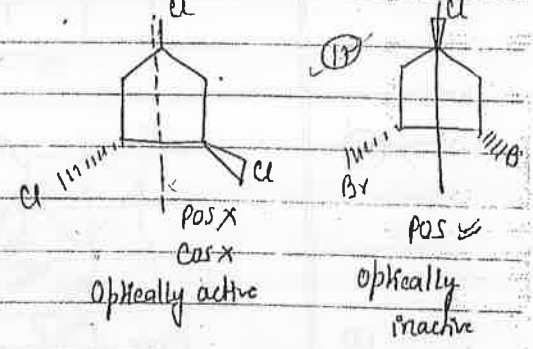 Cl
Cl
Cl
POS X
COS X
Optically active
17
Cl
Br
POS ✓
Optically
inactive